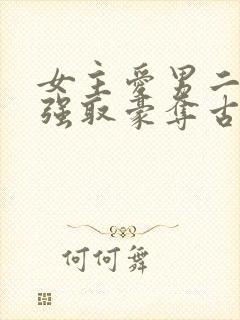 女主爱男二
强取豪夺古
何何舞